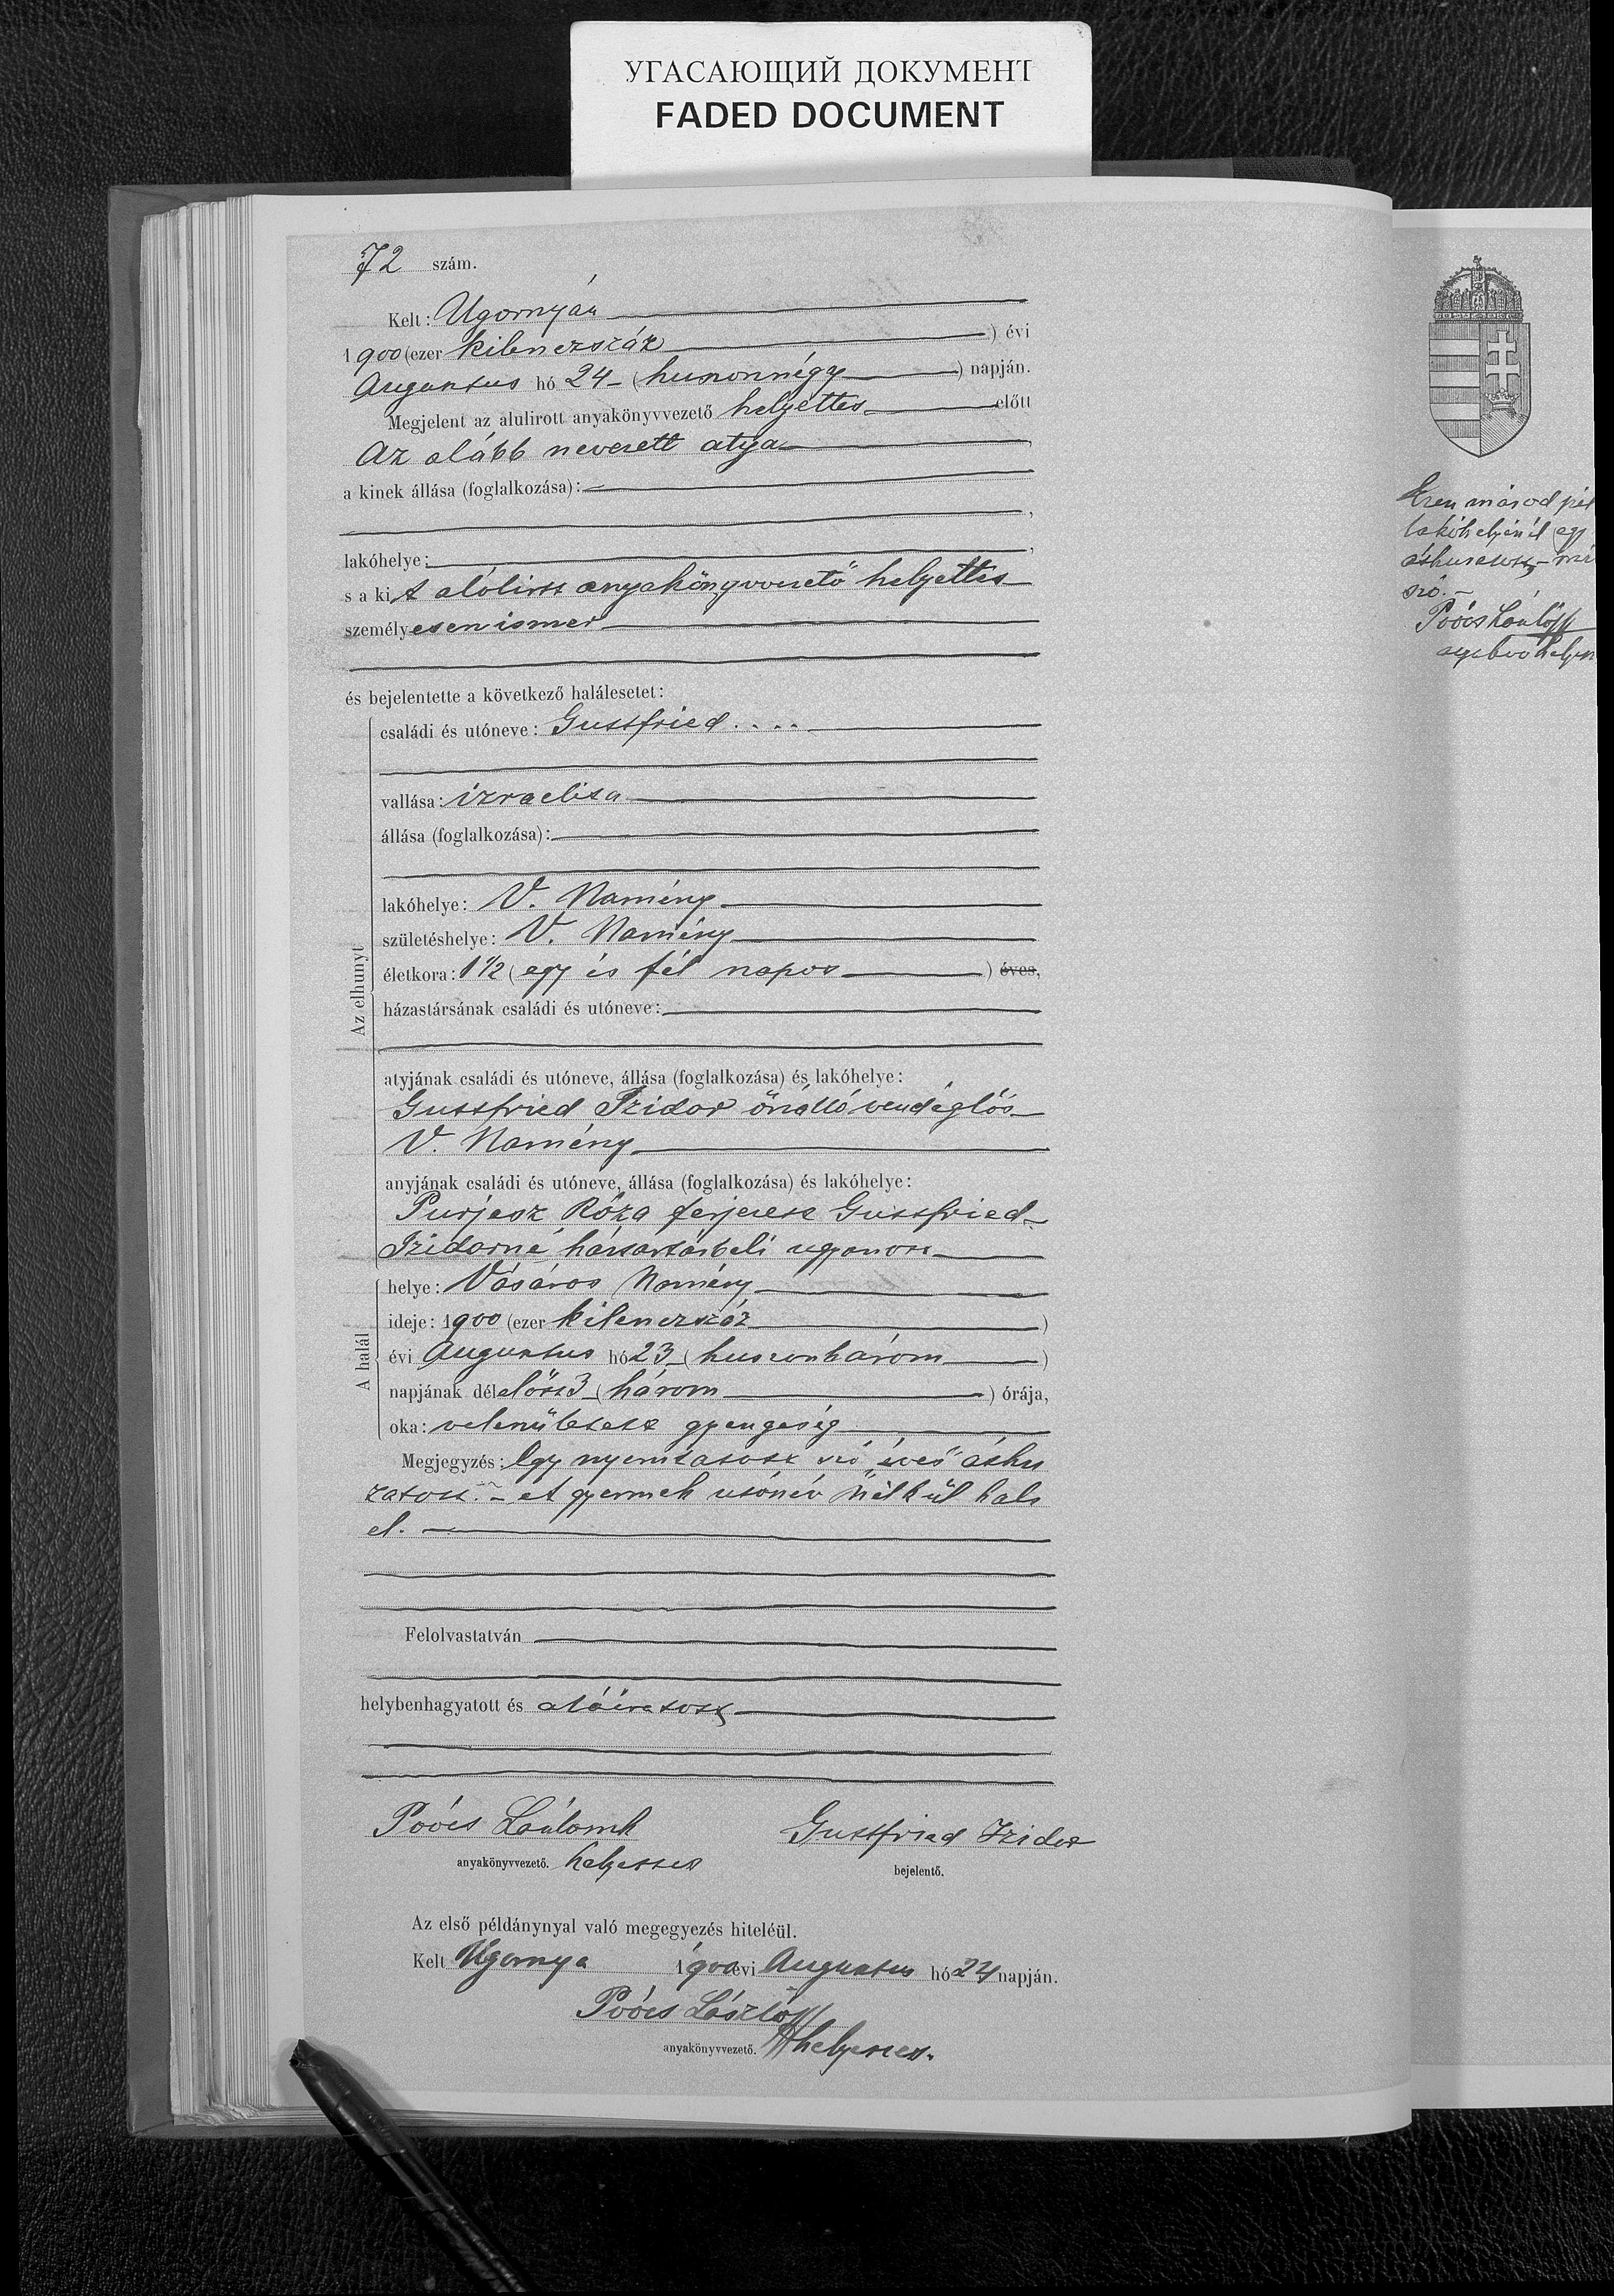 УГАСАЮЩИЙ ДОКУМЕНТ
FADED DOCUMENT
72 szám.
Kelt: Ugornyán
1900 (ezer kilenczszáz ) évi
Augusztus hó 24 (huszonnégy ) napján.
Megjelent az alulirott anyakönyvvezető helyettes előtt
Az alább nevezett atya
a kinek állása (foglalkozása):
lakóhelye:
s a kit alólirt anyakönyvvezető helyettes
személyesen ismer
és bejelentette a következő halálesetet:
Az elhunyt
családi és utóneve: Guttfried . . . .
vallása: izraelita
állása (foglalkozása):
lakóhelye: V. Namény
születéshelye: V. Namény
életkora: 1 1/2 (egy és fél napos ) éves,
házastársának családi és utóneve:
atyjának családi és utóneve, állása (foglalkozása) és lakóhelye:
Guttfried Izidor önálló vendéglős
V. Namény
anyjának családi és utóneve, állása (foglalkozása) és lakóhelye:
Purjesz Róza férjezett Guttfried
Izidorné háztartásbeli ugyanott
A halál
helye: Vásáros Namény
ideje: 1900 (ezer kilenczszáz )
évi Augusztus hó 23 (huszonhárom )
napjának délelőtt 3 (három ) órája,
oka: veleszületett gyengeség
Megjegyzés: Egy nyomtatott szó "éves" áthu
zatott. - A gyermek utónév nélkül halt
el.
Felolvastatván
helybenhagyatott és aláiratott
Poócs László Guttfried Izidor
anyakönyvvezető. helyettes bejelentő.
Az első példánynyal való megegyezés hiteléül.
Kelt Ugornya 1900 évi Augusztus hó 24 napján.
Poócs László
anyakönyvvezető. helyettes.
Ezen másod pél
lakóhelyénél egy
áthuzatott,
szó. -
Poócs László